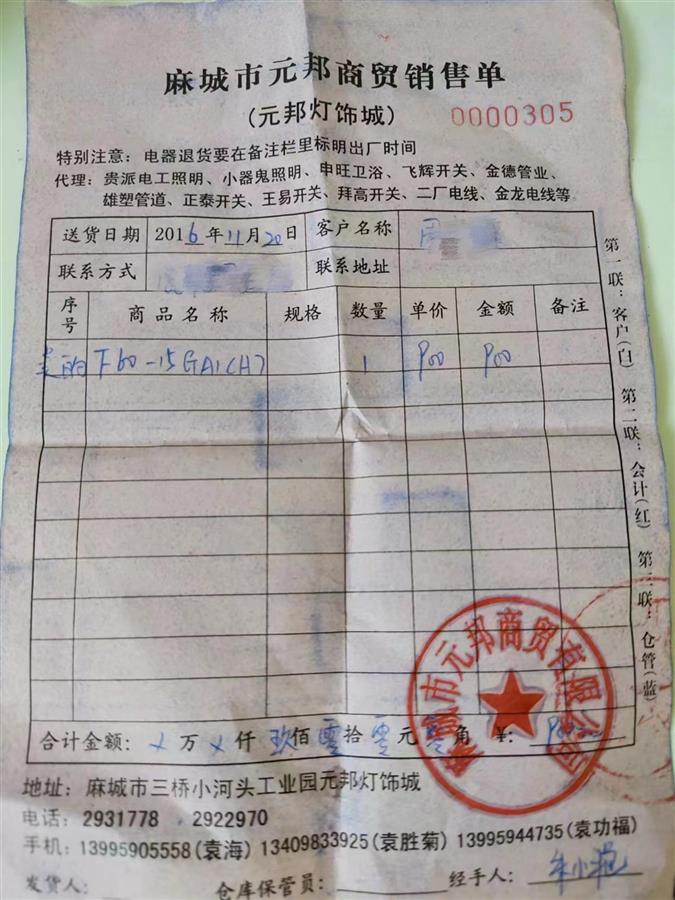 麻城市元邦商贸销售单
(元邦灯饰城)
0000305
特别注意：电器退货要在备注栏里标明出厂时间
代理：贵派电工照明、小器鬼照明、申旺卫浴、飞辉开关、金德管业、
雄塑管道、正泰开关、王易开关、拜高开关、二厂电线、金龙电线等
送货日期 2016年11月20日 客户名称
联系方式 联系地址
序号 商品名称 规格 数量 单价 金额 备注
美的 F60-15GA1(H) 1 900 900
合计金额：×万×仟玖佰零拾零元零角 ¥：900
地址：麻城市三桥小河头工业园元邦灯饰城
电话：2931778 ，2922970
手机：13995905558(袁海) 13409833925(袁胜菊) 13995944735(袁功福)
发货人： 仓库保管员： 经手人：
第一联：客户(白) 第二联：会计(红) 第三联：仓管(蓝)
麻城市元邦商贸有限公司